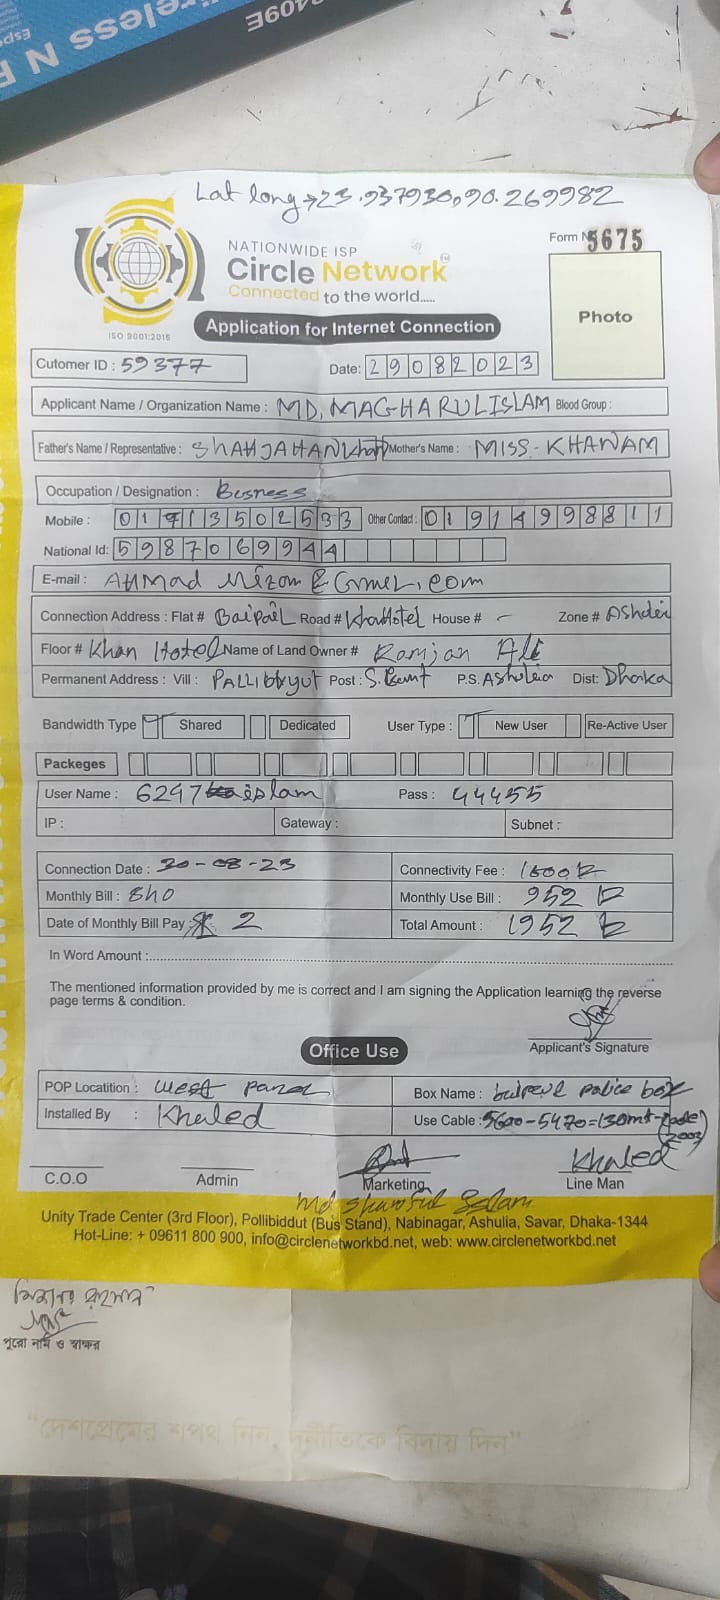 Wireless N R
Lat long → 23.937930,90.269982
Form № 5675
NATIONWIDE ISP
Circle Network
Connected to the world.....
ISO 9001:2015
Application for Internet Connection
Photo
Cutomer ID : 59377
Date: 29082023
Applicant Name / Organization Name : MD. MAGHARUL ISLAM Blood Group :
Father's Name / Representative : SHAHJAHAN Khan Mother's Name : MISS. KHANAM
Occupation / Designation : Busness
Mobile : 01713502533 Other Contact : 01914998811
National Id: 5987069944
E-mail :
Connection Address : Flat # Baipail Road # Khan Hotel House # - Zone #
Floor # Khan Hotel Name of Land Owner # Ramjan Ali
Permanent Address : Vill : Post : P.S. Ashulia Dist: Dhaka
Bandwidth Type Shared Dedicated User Type : New User Re-Active User
Packeges
User Name : 6297 islam Pass : 44455
IP : Gateway : Subnet :
Connection Date : 30-08-23 Connectivity Fee :
Monthly Bill : Monthly Use Bill : 952
Date of Monthly Bill Pay : 2 Total Amount : 1952
In Word Amount :
The mentioned information provided by me is correct and I am signing the Application learning the reverse
page terms & condition.
Applicant's Signature
Office Use
POP Locatition : west Box Name : police box
Installed By : Khaled Use Cable : 5600-5470=130mt
Khaled
C.O.O Admin Marketing Line Man
Unity Trade Center (3rd Floor), Pollibiddut (Bus Stand), Nabinagar, Ashulia, Savar, Dhaka-1344
Hot-Line: + 09611 800 900, info@circlenetworkbd.net, web: www.circlenetworkbd.net
পুরো নাম ও স্বাক্ষর
"দেশপ্রেমের শপথ নিন, দুর্নীতিকে বিদায় দিন"